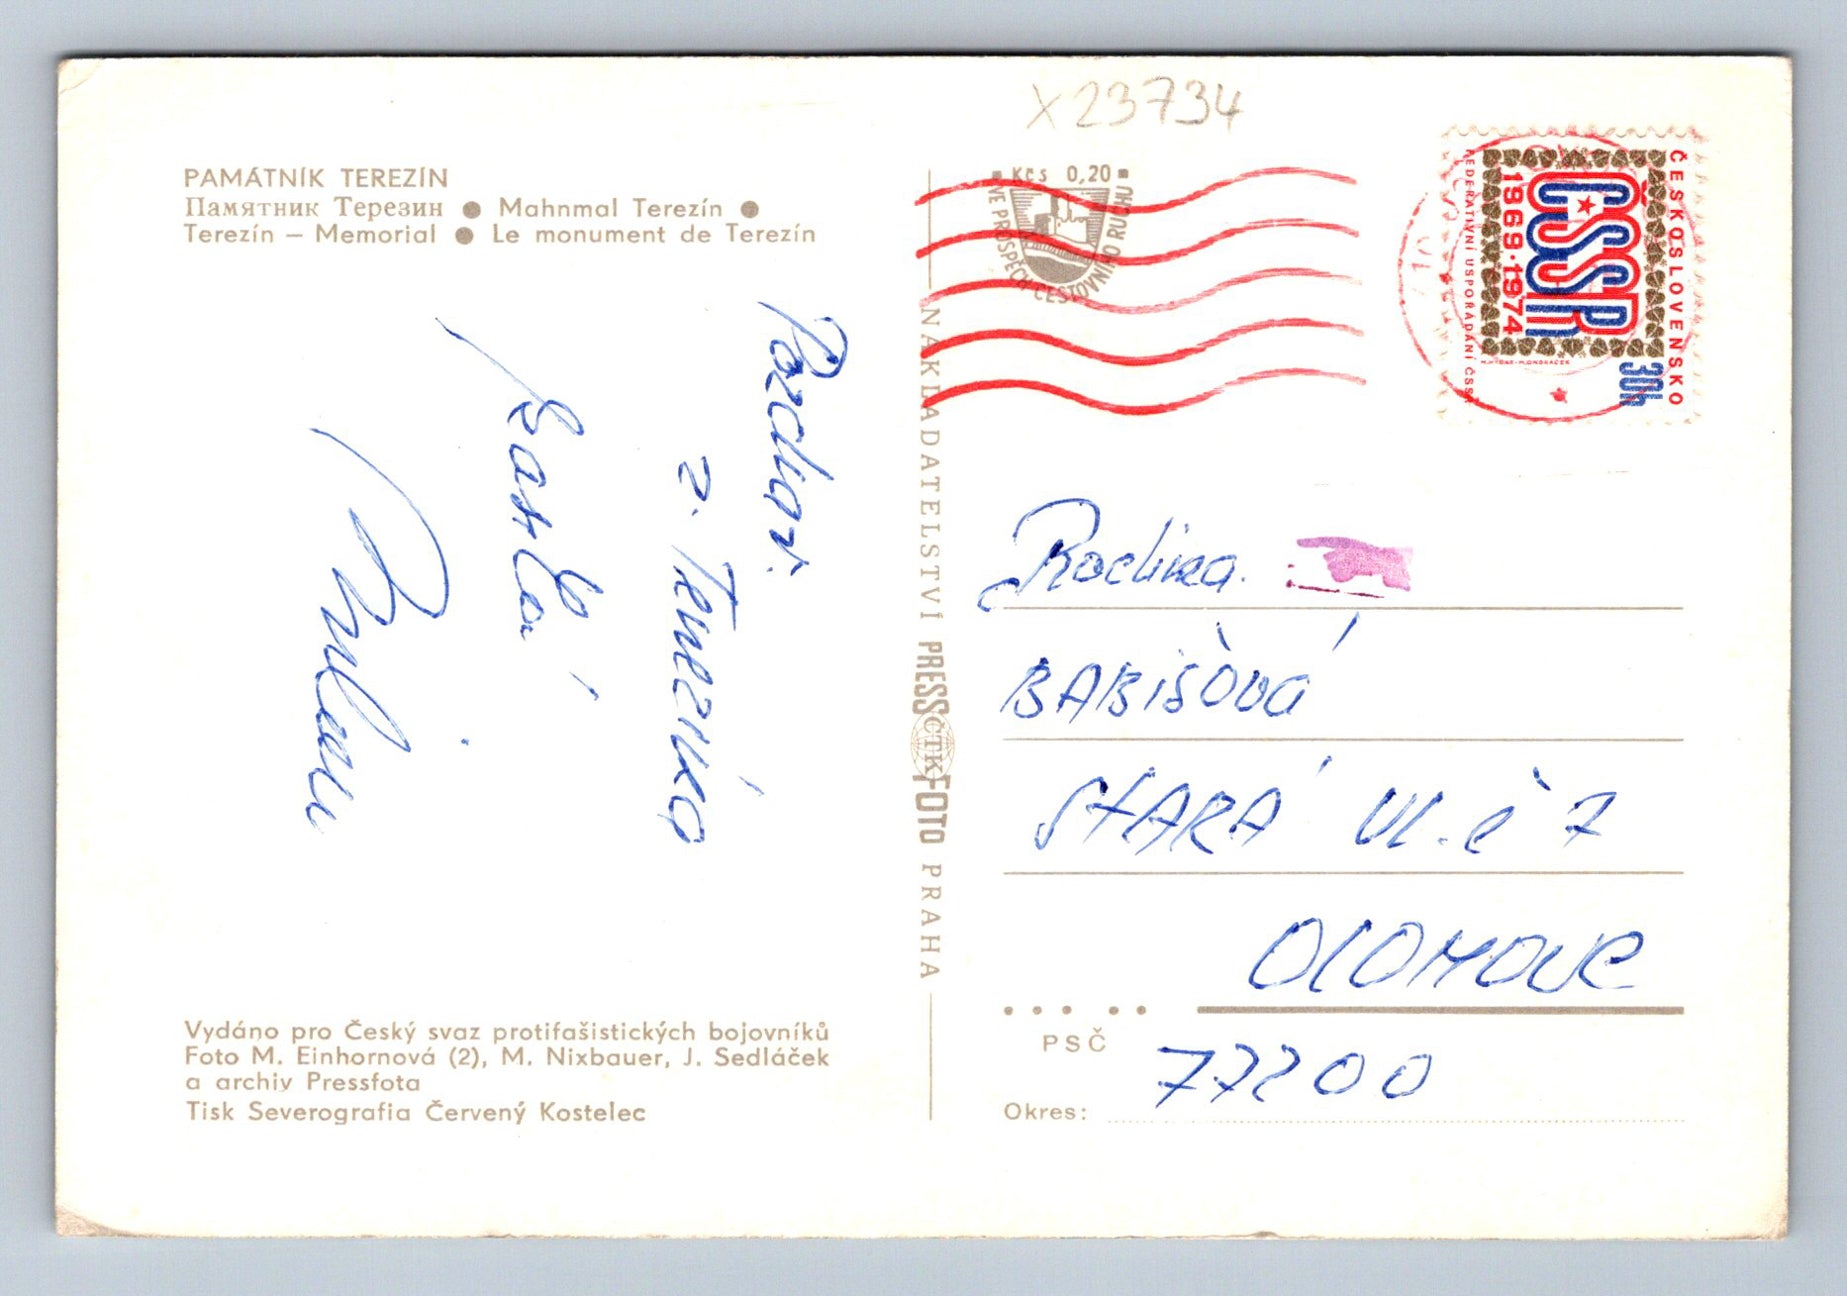 X23734
PAMÁTNÍK TEREZÍN
Памятник Терезин ● Mahnmal Terezín ●
Terezín – Memorial ● Le monument de Terezín
Pozdrav
z Terezína
Vydáno pro Český svaz protifašistických bojovníků
Foto M. Einhornová (2), M. Nixbauer, J. Sedláček
a archiv Pressfota
Tisk Severografia Červený Kostelec
NAKLADATELSTVÍ PRESSFOTO PRAHA
ČTK
Kčs 0,20
VE PROSPĚCH CESTOVNÍHO RUCHU
ČESKOSLOVENSKO
30h
ČSSR
1969·1974
FEDERATIVNÍ USPOŘÁDÁNÍ ČSSR
Rodina
BABIŠOVÁ
STARÁ UL. č 7
OLOMOUC
PSČ
77200
Okres: